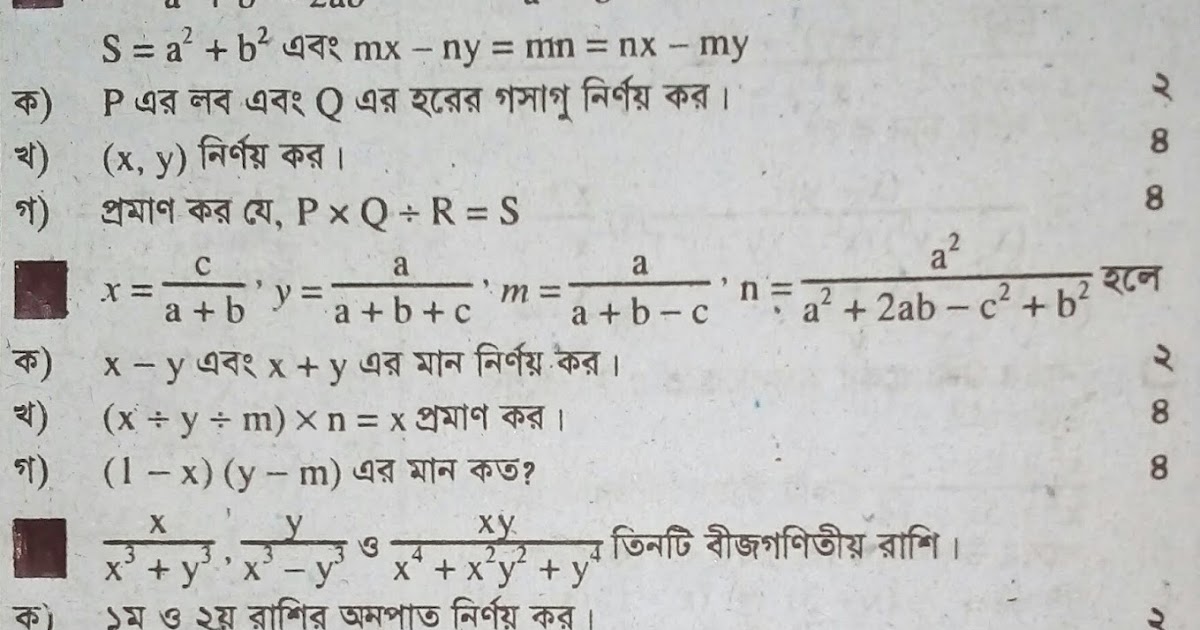 S = a² + b² এবং mx – ny = mn = nx – my
ক) P এর লব এবং Q এর হরের গসাগু নির্ণয় কর। ২
খ) (x, y) নির্ণয় কর। 8
গ) প্রমাণ কর যে, P × Q ÷ R = S 8
x = c/(a + b), y = a/(a + b + c), m = a/(a + b – c), n = a²/(a² + 2ab – c² + b²) হলে
ক) x – y এবং x + y এর মান নির্ণয় কর। ২
খ) (x ÷ y ÷ m) × n = x প্রমাণ কর। 8
গ) (1 – x) (y – m) এর মান কত? 8
x/(x³ + y³), y/(x³ – y³) ও xy/(x⁴ + x²y² + y⁴) তিনটি বীজগণিতীয় রাশি।
ক) ১ম ও ২য় রাশির অনুপাত নির্ণয় কর। ২